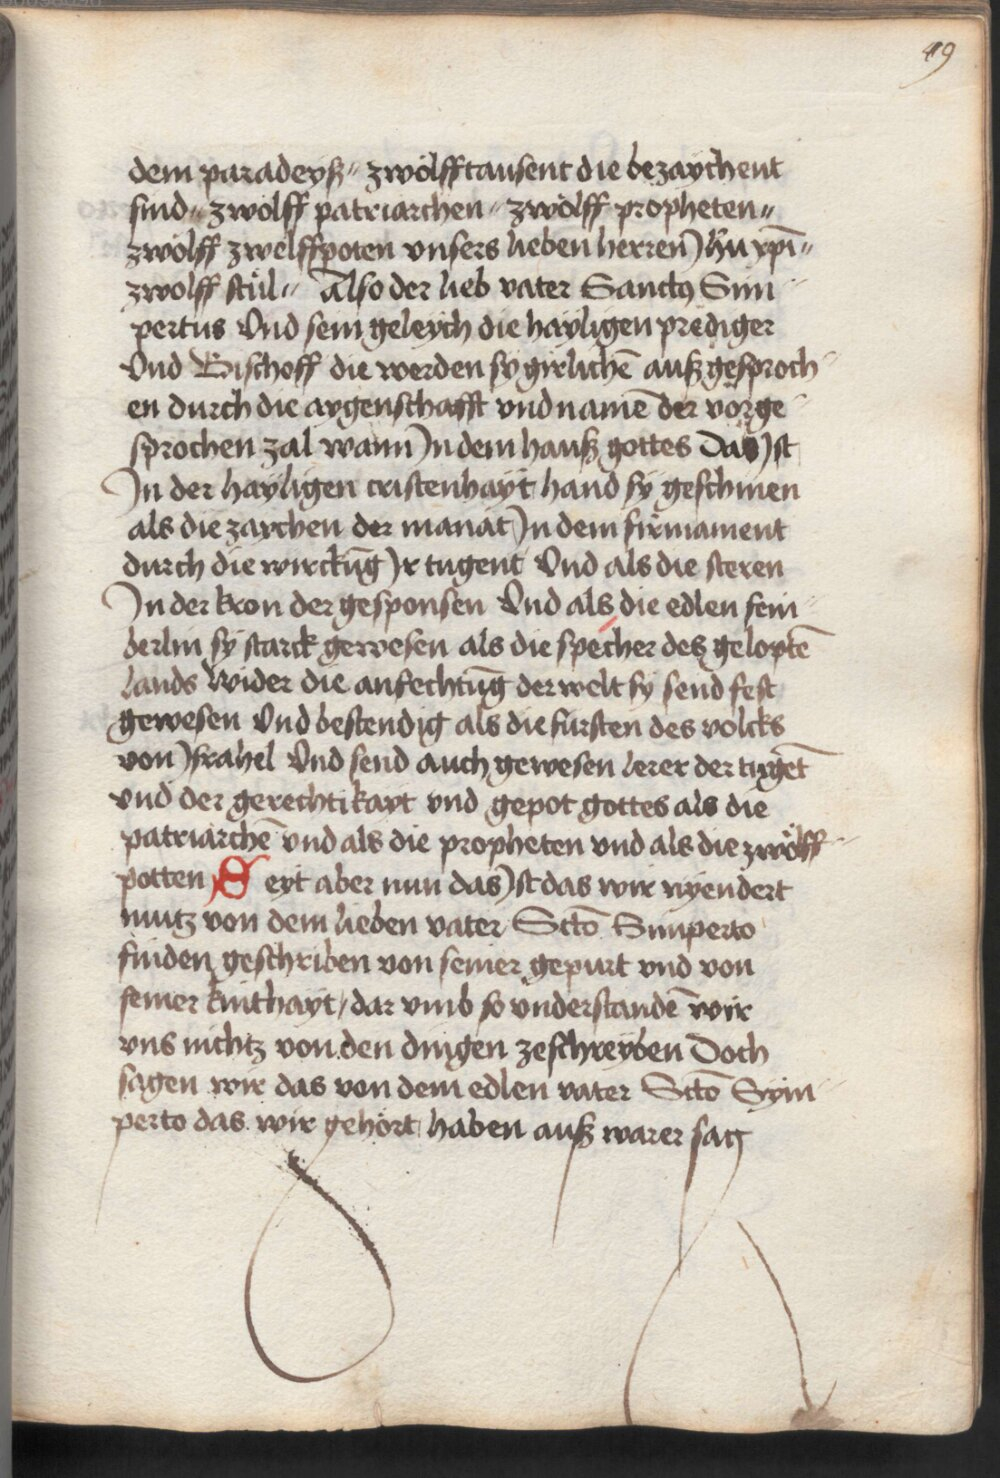 49
dem paradeyß〃 zwölfftausent die bezaychent
sind〃 zwölff patriarchen〃 zwölff propheten〃
zwölff zwelffpoten vnsers lieben herren Jhu xpī〃
zwölff stül〃 Also der lieb vater Sanctus Sim
pertus Vnd sein geleych die hayligen prediger
Vnd Bischoff die werden sygirlichē außgesproch
en durch die aygenschafft vnd namē der vorge
sprochen zal wann Jn dem hauß gottes Das Jst
Jn der hayligen cristenhayt hand sy geschinen
als die zaychen der manat Jn dem firmament
durch die wirckūg Jr tugent Vnd als die steren
Jn der kron der gesponsen Vnd als die edlen fein
berlin sy starck gewesen als die specher des geloptē
lands Wider die anfechtūg der welt sy send fest
gewesen Vnd bestendig als die fürsten des volcks
von Jsrahel Vnd send auch gewesen lerer der tugēt
vnd der gerechtikayt vnd gepot gottes als die
patriarchē vnd als die propheten vnd als die zwölff
potten Seyt aber nun das Jst das wir nyendert
nutz von dem lieben vater Sctō Simperto
finden geschriben von seiner gepurt vnd von
seiner kinthayt / dar vmb so vnderstandē wir
vns nichtz von den dingen zeschreyben Doch
sagen wir das von dem edlen vater Sctō Sym
perto das wir gehört haben auß warer sag